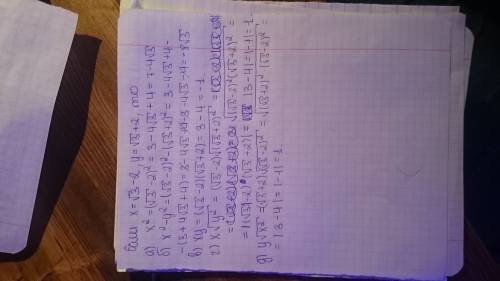 Если x = √3 - 2, y = √3 + 2, то
а) x² = (√3 - 2)² = 3 - 4√3 + 4 = 7 - 4√3
б) x² - y² = (√3 - 2)² - (√3 + 2)² = 3 - 4√3 + 4 -
- (3 + 4√3 + 4) = 3 - 4√3 + 4 - 3 - 4√3 - 4 = -8√3
в) xy = (√3 - 2)(√3 + 2) = 3 - 4 = -1.
г) x√y² = (√3 - 2)√(√3 + 2)² =
= √(√3 - 2)²(√3 + 2)² =
= |(√3 - 2)(√3 + 2)| = |3 - 4| = |-1| = 1
д) y√x² = (√3 + 2)√(√3 - 2)² = √(√3 + 2)² (√3 - 2)² =
= |3 - 4| = |-1| = 1.